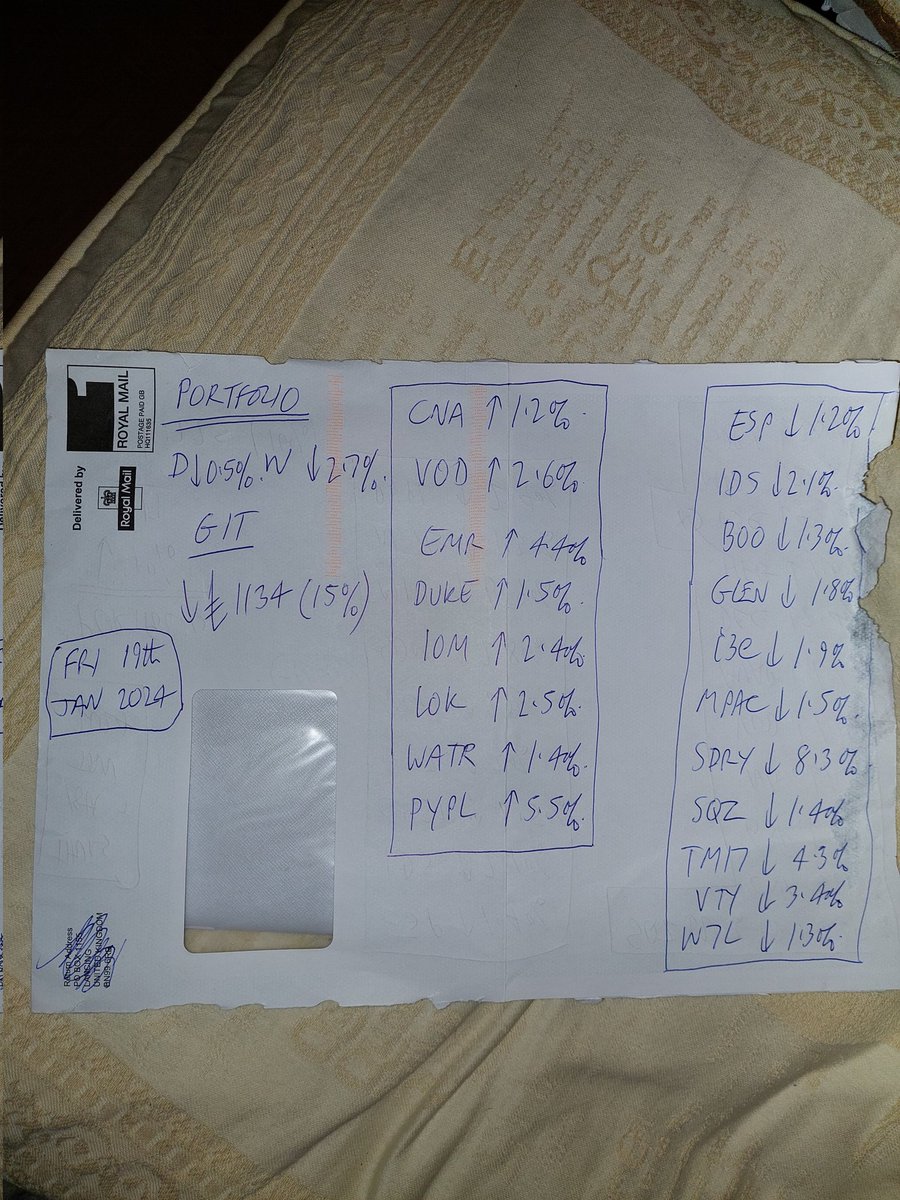 PORTFOLIO
D↓0.5%. W ↓2.7%.
GIT
↓£1134 (15%)
FRI 19th
JAN 2024
CNA ↑ 1.2%.
VOD ↑ 2.6%.
EMR ↑ 4.4%
DUKE ↑ 1.5%.
IOM ↑ 2.4%.
LOK ↑ 2.5%.
WATR ↑ 1.4%.
PYPL ↑ 5.5%.
ESP ↓ 1.2%
IDS ↓ 2.1%.
BOO ↓ 1.3%.
GLEN ↓ 1.8%
i3E ↓ 1.9%
MPAC ↓ 1.5%.
SDRY ↓ 8.3%.
SQZ ↓ 1.4%
TM17 ↓ 4.3%
VTY ↓ 3.4%
W7L ↓ 1.3%.
ROYAL MAIL
POSTAGE PAID GB
HQ111635
Delivered by
Royal Mail
Address
PO BOX
LANCING
UNITED KINGDOM